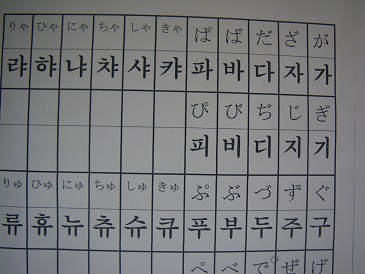 りゃ ひゃ にゃ ちゃ しゃ きゃ ぱ ば だ ざ が
랴 햐 냐 챠 샤 캬 파 바 다 자 가
ぴ び ぢ じ ぎ
피 비 디 지 기
りゅ ひゅ にゅ ちゅ しゅ きゅ ぷ ぶ づ ず ぐ
류 휴 뉴 츄 슈 큐 푸 부 두 주 구
ぺ べ で ぜ げ